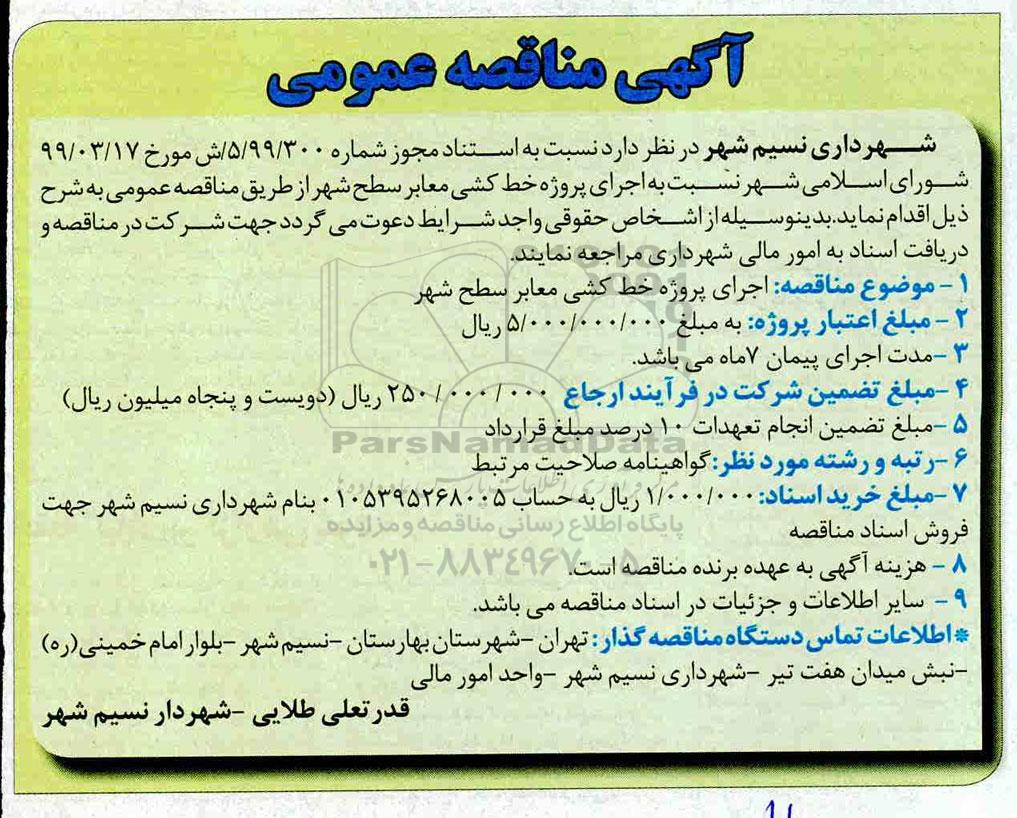 آگهی مناقصه عمومی
شهرداری نسیم شهر در نظر دارد نسبت به استناد مجوز شماره ۵/۹۹/۳۰۰/ش مورخ ۹۹/۰۳/۱۷
شورای اسلامی شهر نسبت به اجرای پروژه خط کشی معابر سطح شهر از طریق مناقصه عمومی به شرح
ذیل اقدام نماید.بدینوسیله از اشخاص حقوقی واجد شرایط دعوت می گردد جهت شرکت در مناقصه و
دریافت اسناد به امور مالی شهرداری مراجعه نمایند.
۱ - موضوع مناقصه: اجرای پروژه خط کشی معابر سطح شهر
۲ - مبلغ اعتبار پروژه: به مبلغ ۵/۰۰۰/۰۰۰/۰۰۰ ریال
۳ -مدت اجرای پیمان ۷ماه می باشد.
۴ -مبلغ تضمین شرکت در فرآیند ارجاع ۲۵۰/۰۰۰/۰۰۰ ریال (دویست و پنجاه میلیون ریال)
۵ -مبلغ تضمین انجام تعهدات ۱۰ درصد مبلغ قرارداد
ParsNamadData
۶ -رتبه و رشته مورد نظر:گواهینامه صلاحیت مرتبط
۷ -مبلغ خرید اسناد: ۱/۰۰۰/۰۰۰ ریال به حساب ۰۱۰۵۳۹۵۲۶۸۰۰۵ بنام شهرداری نسیم شهر جهت
پایگاه اطلاع رسانی مناقصه و مزایده
فروش اسناد مناقصه
۰۲۱-۸۸۳۴۹۶۷۰-۵
۸ - هزینه آگهی به عهده برنده مناقصه است.
۹ - سایر اطلاعات و جزئیات در اسناد مناقصه می باشد.
*اطلاعات تماس دستگاه مناقصه گذار: تهران -شهرستان بهارستان -نسیم شهر -بلوار امام خمینی(ره)
-نبش میدان هفت تیر -شهرداری نسیم شهر -واحد امور مالی
قدرتعلی طلایی -شهردار نسیم شهر